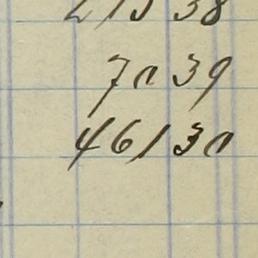 38
70 39
461 30